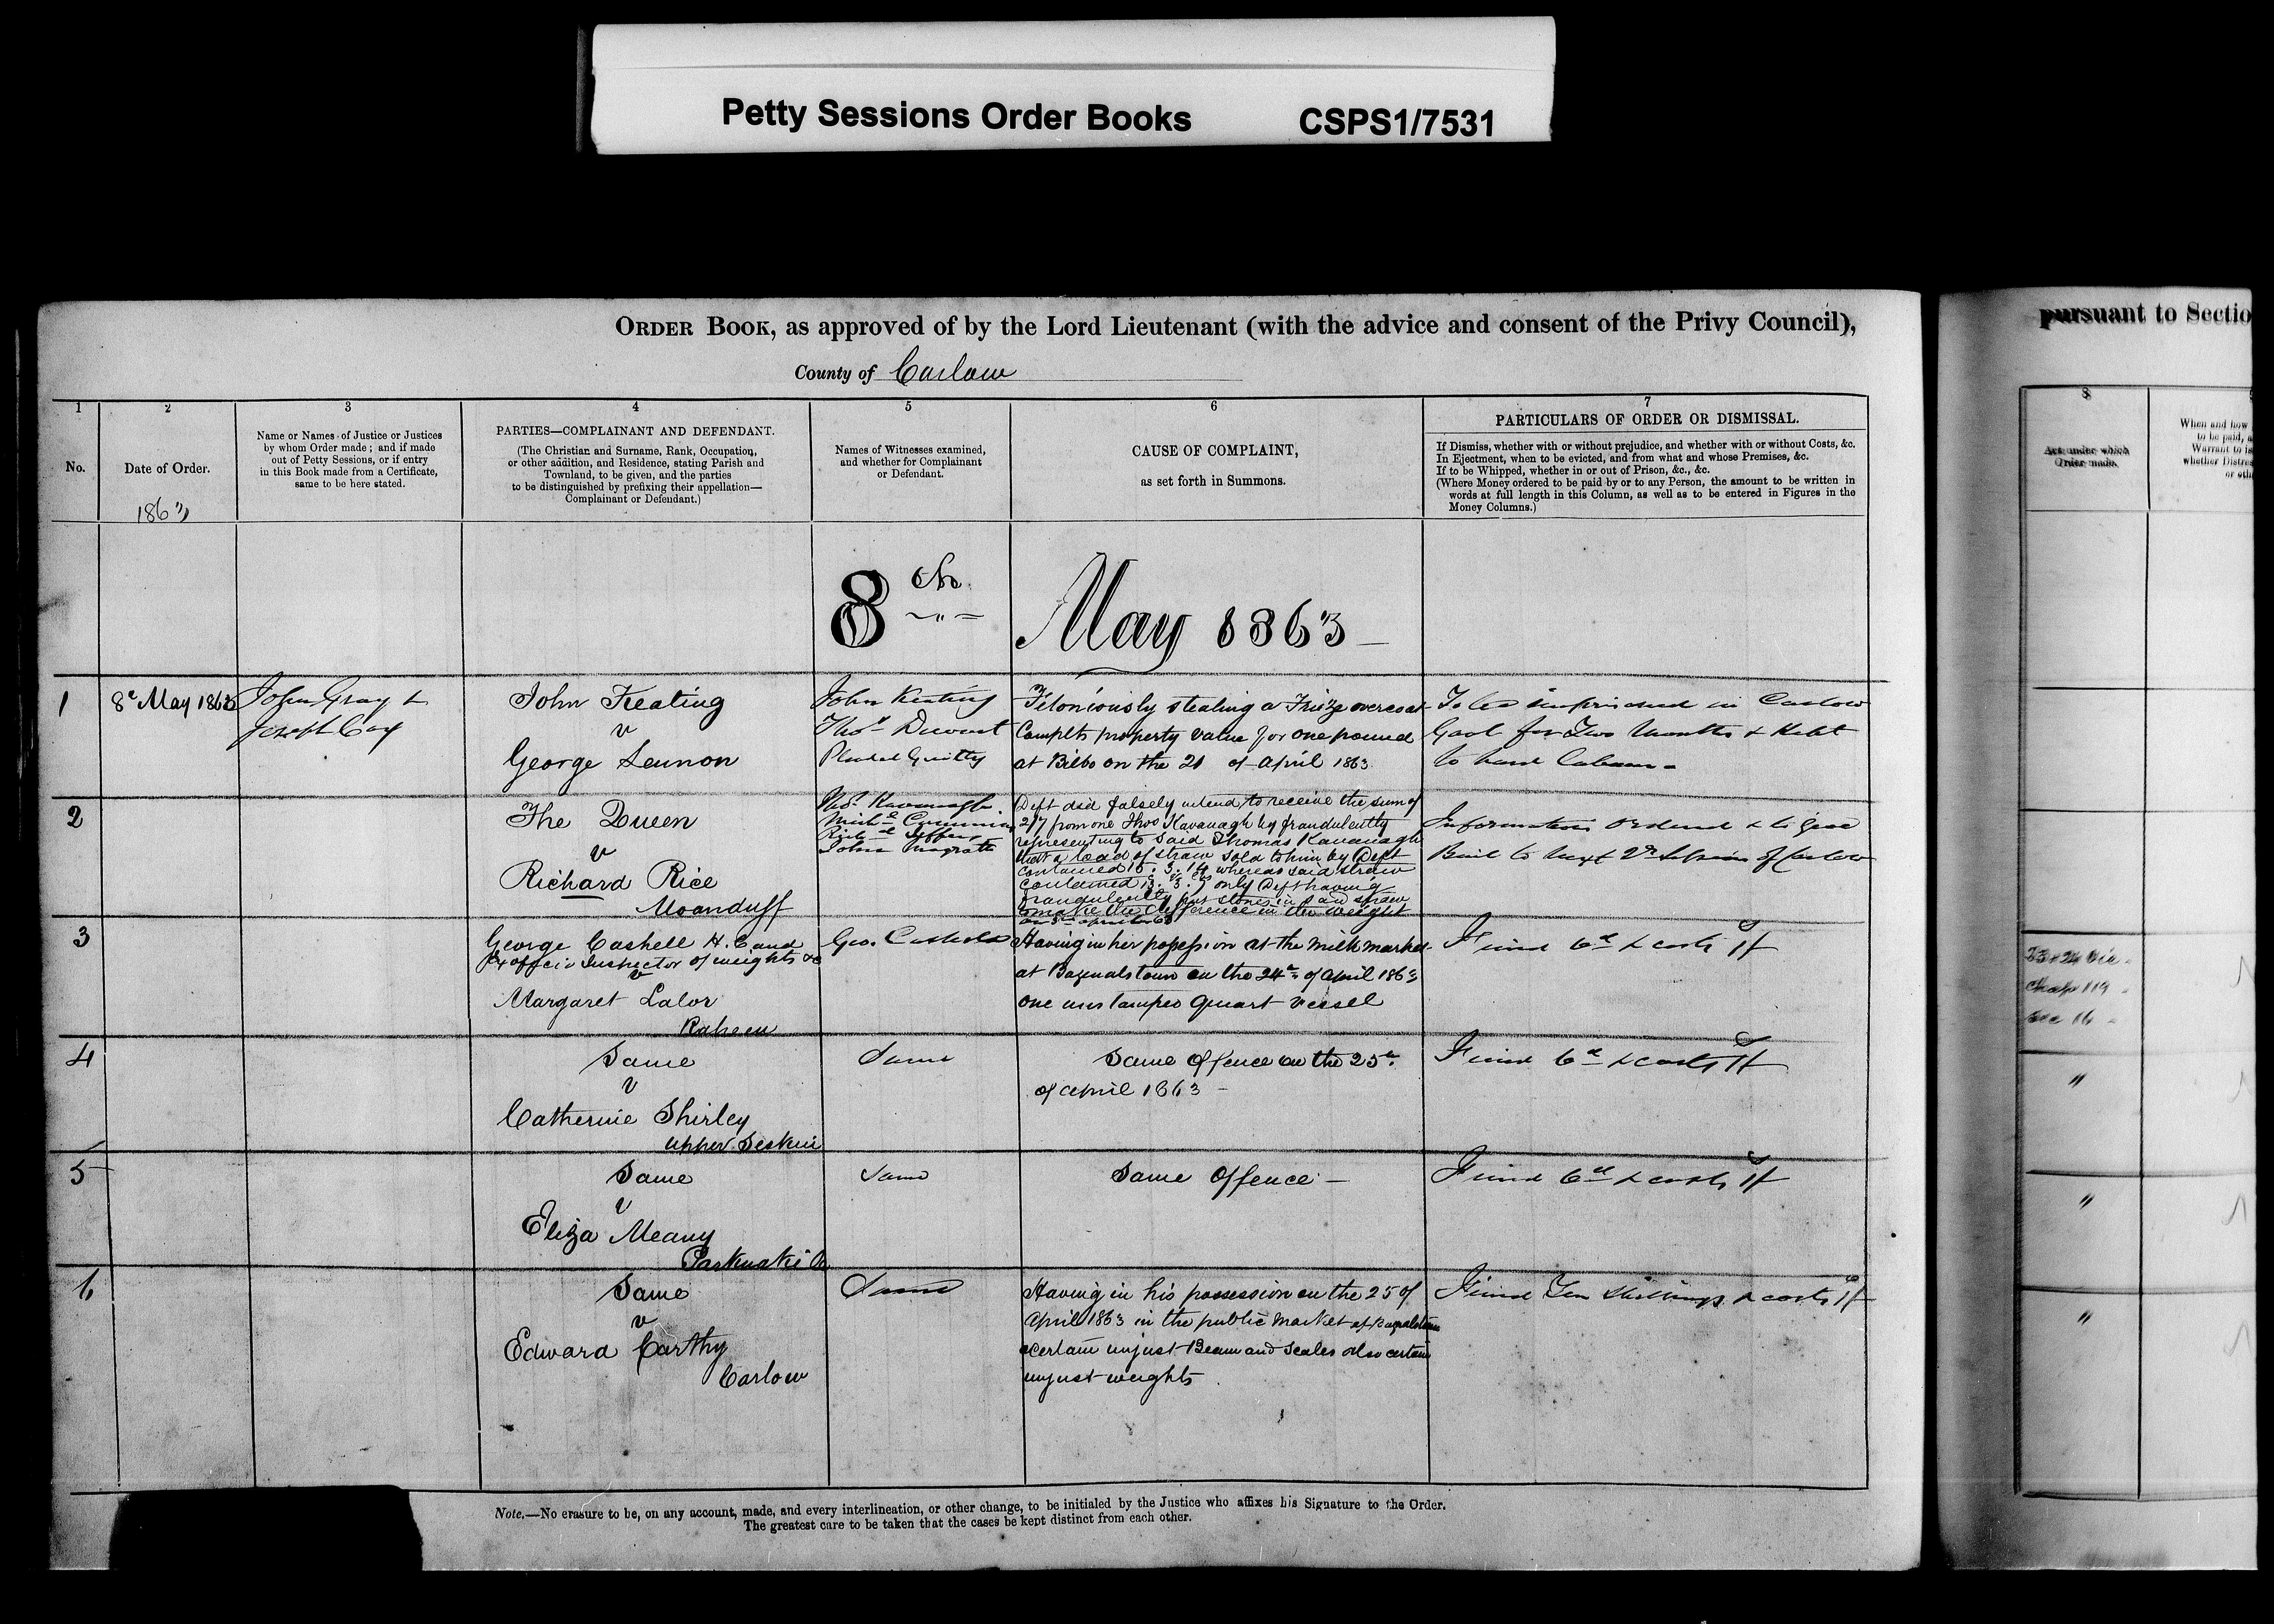 Petty Sessions Order Books CSPS1/7531
ORDER BOOK, as approved of by the Lord Lieutenant (with the advice and consent of the Privy Council),
pursuant to Sectio
County of Carlow
1
No.
2
Date of Order.
1863
3
Name or Names of Justice or Justices
by whom Order made; and if made
out of Petty Sessions, or if entry
in this Book made from a Certificate,
same to be here stated.
4
PARTIES—COMPLAINANT AND DEFENDANT.
(The Christian and Surname, Rank, Occupation,
or other addition, and Residence, stating Parish and
Townland, to be given, and the parties
to be distinguished by prefixing their appellation—
Complainant or Defendant.)
5
Names of Witnesses examined,
and whether for Complainant
or Defendant.
6
CAUSE OF COMPLAINT,
as set forth in Summons.
7
PARTICULARS OF ORDER OR DISMISSAL.
If Dismiss, whether with or without prejudice, and whether with or without Costs, &c.
In Ejectment, when to be evicted, and from what and whose Premises, &c.
If to be Whipped, whether in or out of Prison, &c., &c.
(Where Money ordered to be paid by or to any Person, the amount to be written in
words at full length in this Column, as well as to be entered in Figures in the
Money Columns.)
8
Act under which
Order made.
When and how
to be paid, a
Warrant to is
whether Distres
or oth
8th May 1863
1
8th May 1863
John Gray &
Joseph Cox
John Keating
v
George Lennon
John Keating
Thos
Pleaded Guilty
Feloniously stealing a Frieze overcoat
Complts property value for one pound
at Bilbo on the 21 of April 1863
To be imprisoned in Carlow
Gaol for Two Months & Kept
to hard labour
2
The Queen
v
Richard Rice
Moanduff
Thos Kavanagh
Michl
Richd
John Magrath
Deft did falsely intend to receive the sum of
2/7 from one Thos Kavanagh by fraudulently
representing to said Thomas Kavanagh
that a load of straw sold to him by Deft
contained whereas said straw
contained only Deft having
fraudulently put stones in said straw
to make the difference in the weight
on April
Informations ordered & to give
Bail to next Qr Session of Carlow
3
George Cashell H.C and
Ex officio Inspector of weights &c
v
Margaret Lalor
Raheen
Geo. Cashell
Having in her possession at the milk market
at Bagenalstown on the 24th of April 1863
one unstamped quart vessel
Fined 6d & costs 1/
23 & 24 Vic
Chap 119
Sec 16
4
Same
v
Catherine Shirley
Upper Seskin
Same
Same offence on the 25th
of April 1863
Fined 6d & costs 1/
"
5
Same
v
Eliza Meany
Same
Same Offence
Fined 6d & costs 1/
"
6
Same
v
Edward Carthy
Carlow
Same
Having in his possession on the 25 of
April 1863 in the public market at Bagnalstown
certain unjust Beam and Scales also certain
unjust weights
Fined Ten Shillings & costs 1/
"
Note.—No erasure to be, on any account, made, and every interlineation, or other change, to be initialed by the Justice who affixes his Signature to the Order.
The greatest care to be taken that the cases be kept distinct from each other.